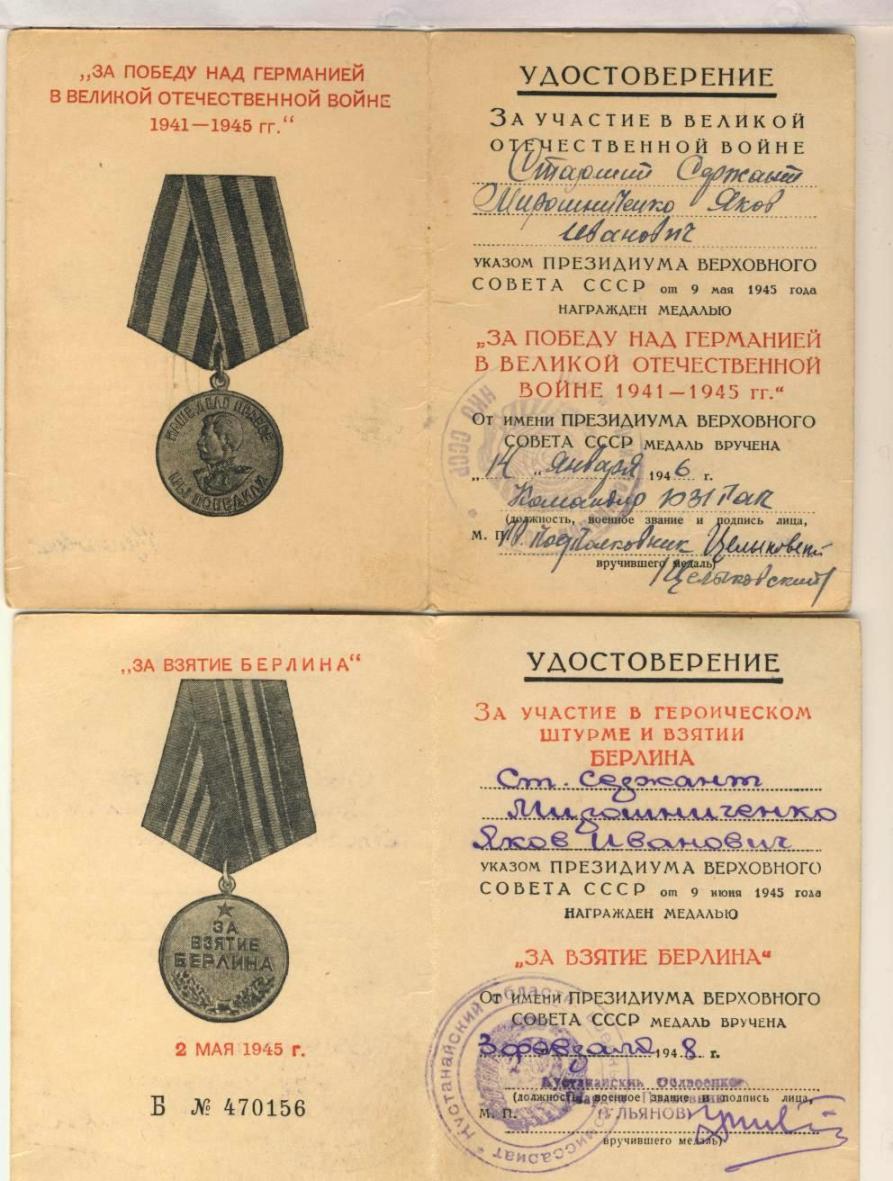 „ЗА ПОБЕДУ НАД ГЕРМАНИЕЙ
В ВЕЛИКОЙ ОТЕЧЕСТВЕННОЙ ВОЙНЕ
1941—1945 гг.“
НАШЕ ДЕЛО ПРАВОЕ
МЫ ПОБЕДИЛИ
УДОСТОВЕРЕНИЕ
ЗА УЧАСТИЕ В ВЕЛИКОЙ
ОТЕЧЕСТВЕННОЙ ВОЙНЕ
Старший Сержант
Мирошниченко Яков
Иванович
УКАЗОМ ПРЕЗИДИУМА ВЕРХОВНОГО
СОВЕТА СССР от 9 мая 1945 года
НАГРАЖДЕН МЕДАЛЬЮ
„ЗА ПОБЕДУ НАД ГЕРМАНИЕЙ
В ВЕЛИКОЙ ОТЕЧЕСТВЕННОЙ
ВОЙНЕ 1941—1945 гг.“
От имени ПРЕЗИДИУМА ВЕРХОВНОГО
СОВЕТА СССР МЕДАЛЬ ВРУЧЕНА
„14 „ Января 1946 г.
НКО СССР
Командир
(должность, военное звание и подпись лица,
М. П. подполковник
вручившего медаль)
Целыковский
„ЗА ВЗЯТИЕ БЕРЛИНА“
ЗА
ВЗЯТИЕ
БЕРЛИНА
2 МАЯ 1945 г.
Б № 470156
УДОСТОВЕРЕНИЕ
ЗА УЧАСТИЕ В ГЕРОИЧЕСКОМ
ШТУРМЕ И ВЗЯТИИ
БЕРЛИНА
Ст. Сержант
Мирошниченко
Яков Иванович
УКАЗОМ ПРЕЗИДИУМА ВЕРХОВНОГО
СОВЕТА СССР от 9 июня 1945 года
НАГРАЖДЕН МЕДАЛЬЮ
„ЗА ВЗЯТИЕ БЕРЛИНА“
От имени ПРЕЗИДИУМА ВЕРХОВНОГО
СОВЕТА СССР МЕДАЛЬ ВРУЧЕНА
3 февраля 1948 г.
Кустанайский
(должность, военное звание и подпись лица,
М. П. (УЛЬЯНОВ)
вручившего медаль)